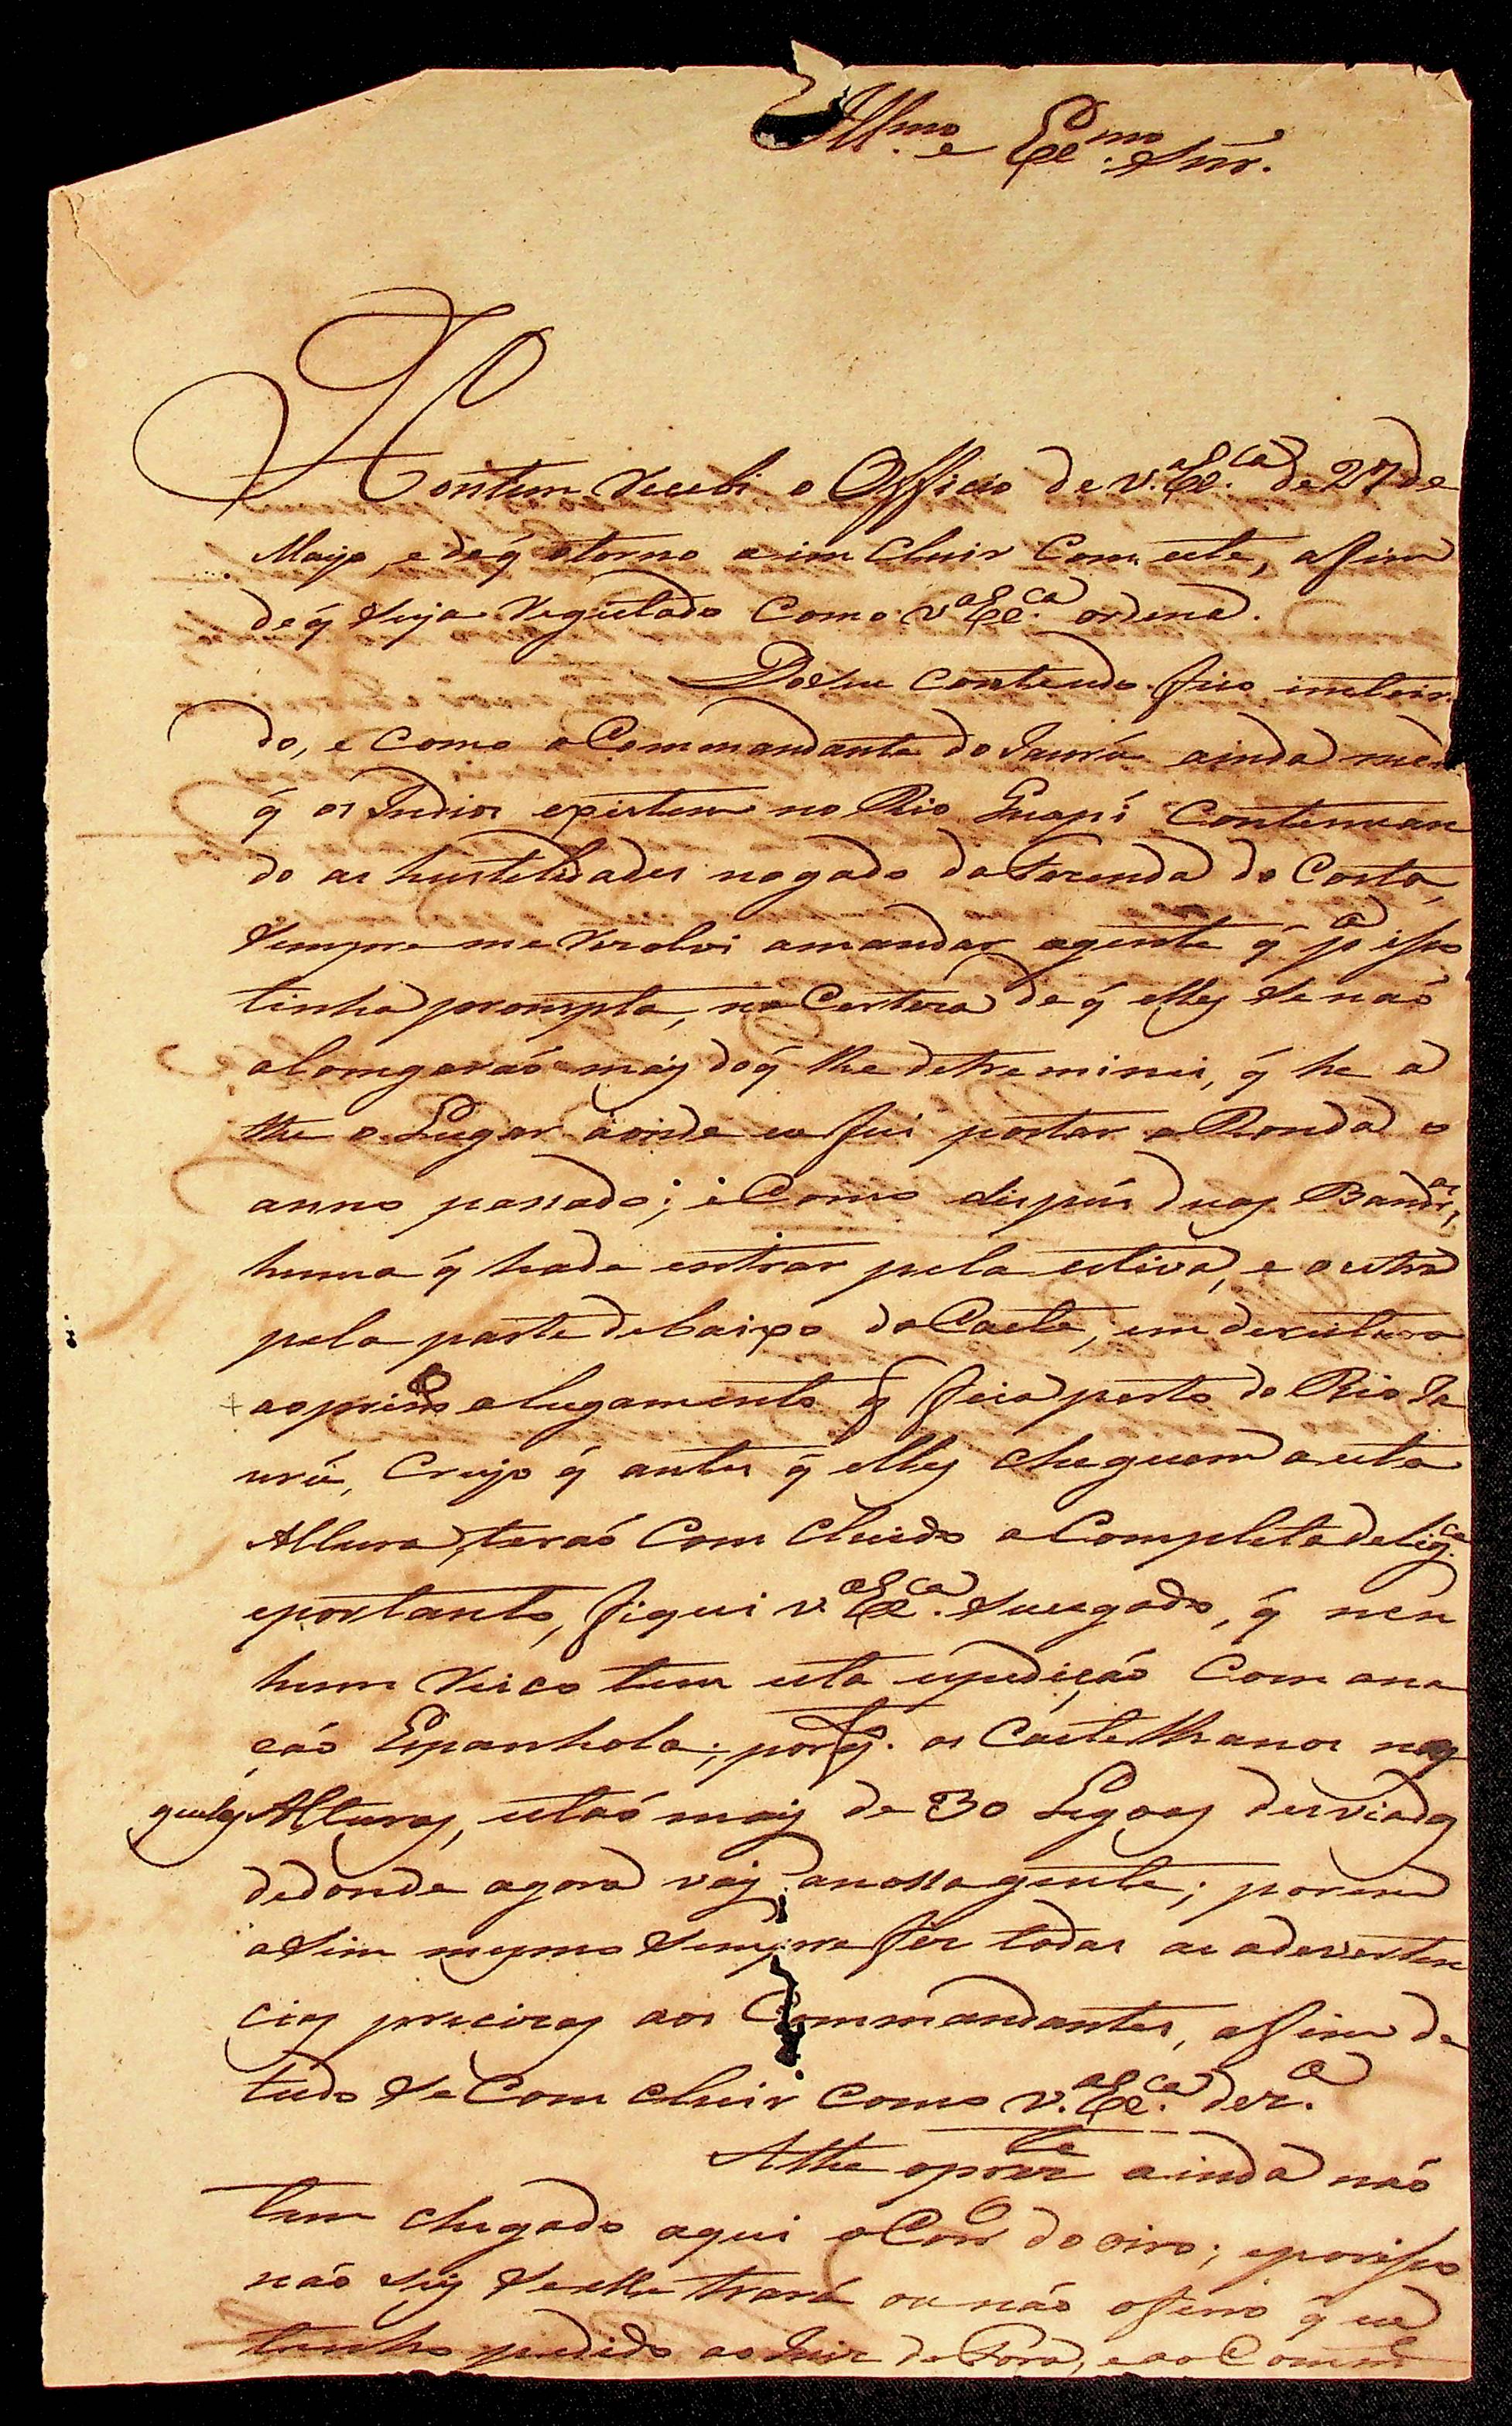 Ill.mo e Ex.mo Snr.
Hontem recebi o Officio de V.a Ex.ca de 27 de
Mayo, e de q̃ otorno a im cluir Com este, afim
de q̃ seja Registado Como V.a Ex.ca ordena.
Doseu contendo fico inteira
do, e como o Commandante do Jaurú ainda
q̃ os Indios existem no Rio Guapí Contenuan
do as hustelidades nogado da Fazenda do Costa,
sempre me rezolvi amandar agente q̃ p.a isso
tinha prompta, na Certeza de q̃ elles se naõ
alomgaraõ mais doq̃ lhe detreminei, q̃ he a
the o Lugar aonde eu fui postar a Ronda o
anno passado; e Como dispús duas Band.as,
huma q̃ hade entrar pela estiva, e a outra
pela parte debaixo do Caete, em
ao prim.o alugamento q̃ fica perto do Rio Ja
urú, Creyo q̃ antes q̃ elles cheguem a esta
Altura, teraõ Com cluido a Completa delig.ca
eportanto, fique V.a Ex.ca Sucegado, q̃ nen
hum risco tem esta espediçaõ Com ana
çaõ Espanhola; porq̃. os Castelhanos na
quelas Alturas, estaõ mais de 30 Legoas desviados
dedonde agora vay anossagente; porem
asim mesmo sempre fis todas as adverten
cias precizas aos Commandantes, afim de
tudo se Com cluir como V.a Ex.ca dez.a
Athe oprez.te ainda naõ
tem chegado aqui o Corr.o do oiro; eporisso
naõ sey se elle trará ou naõ oferro q̃ eu
tenho pedido ao Juiz de Fora, e ao Comm